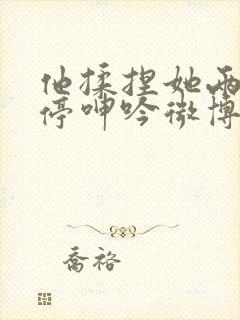 他揉捏她两
停呻吟微博
乔裕